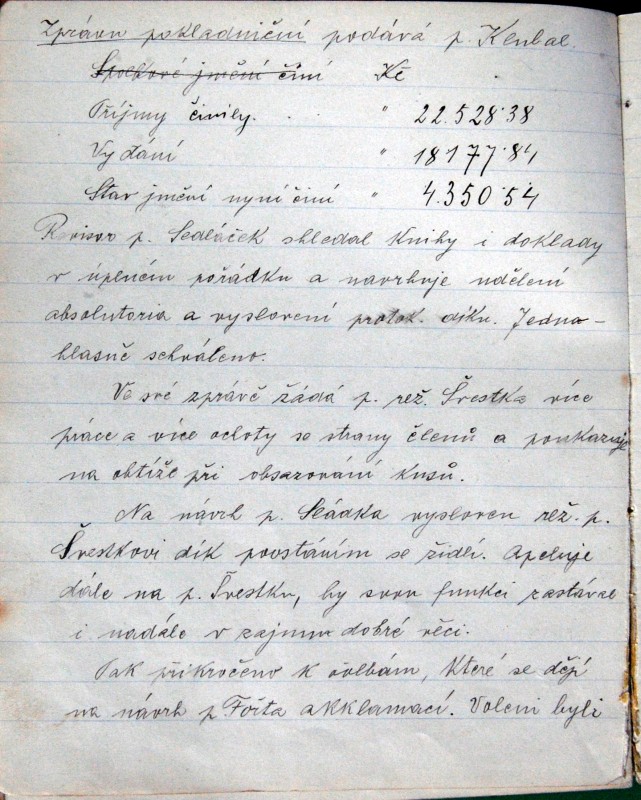 Zprávu pokladniční podává p. Klubal.
Spolkové jmění činí Kč
Příjmy činily. . . " 22.528·38
Vydání " 18177·84
Stav jmění nyní činí " 4.350·54
Revisor p. Sedláček shledal knihy i doklady
v úplném pořádku a navrhuje udělení
absolutoria a vyslovení protok. díku. Jedno-
hlasně schváleno.
Ve své zprávě žádá p. rež. Švestka více
práce a více ochoty se strany členů a poukazuje
na obtíže při obsazování kusů.
Na návrh p. Sládka vysloven rež. p.
Švestkovi dík povstáním se židlí. Apeluje
dále na p. Švestku, by svou funkci zastával
i nadále v zájmu dobré věci.
Pak přikročeno k volbám, které se dějí
na návrh p. Fořta akklamací. Voleni byli